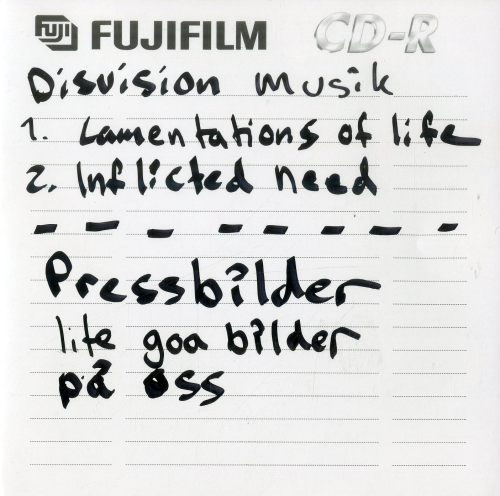 FUJI FUJIFILM CD-R
Disvision musik
1. Lamentations of life
2. Inflicted need
- - - - - - - -
Pressbilder
lite goa bilder
på oss